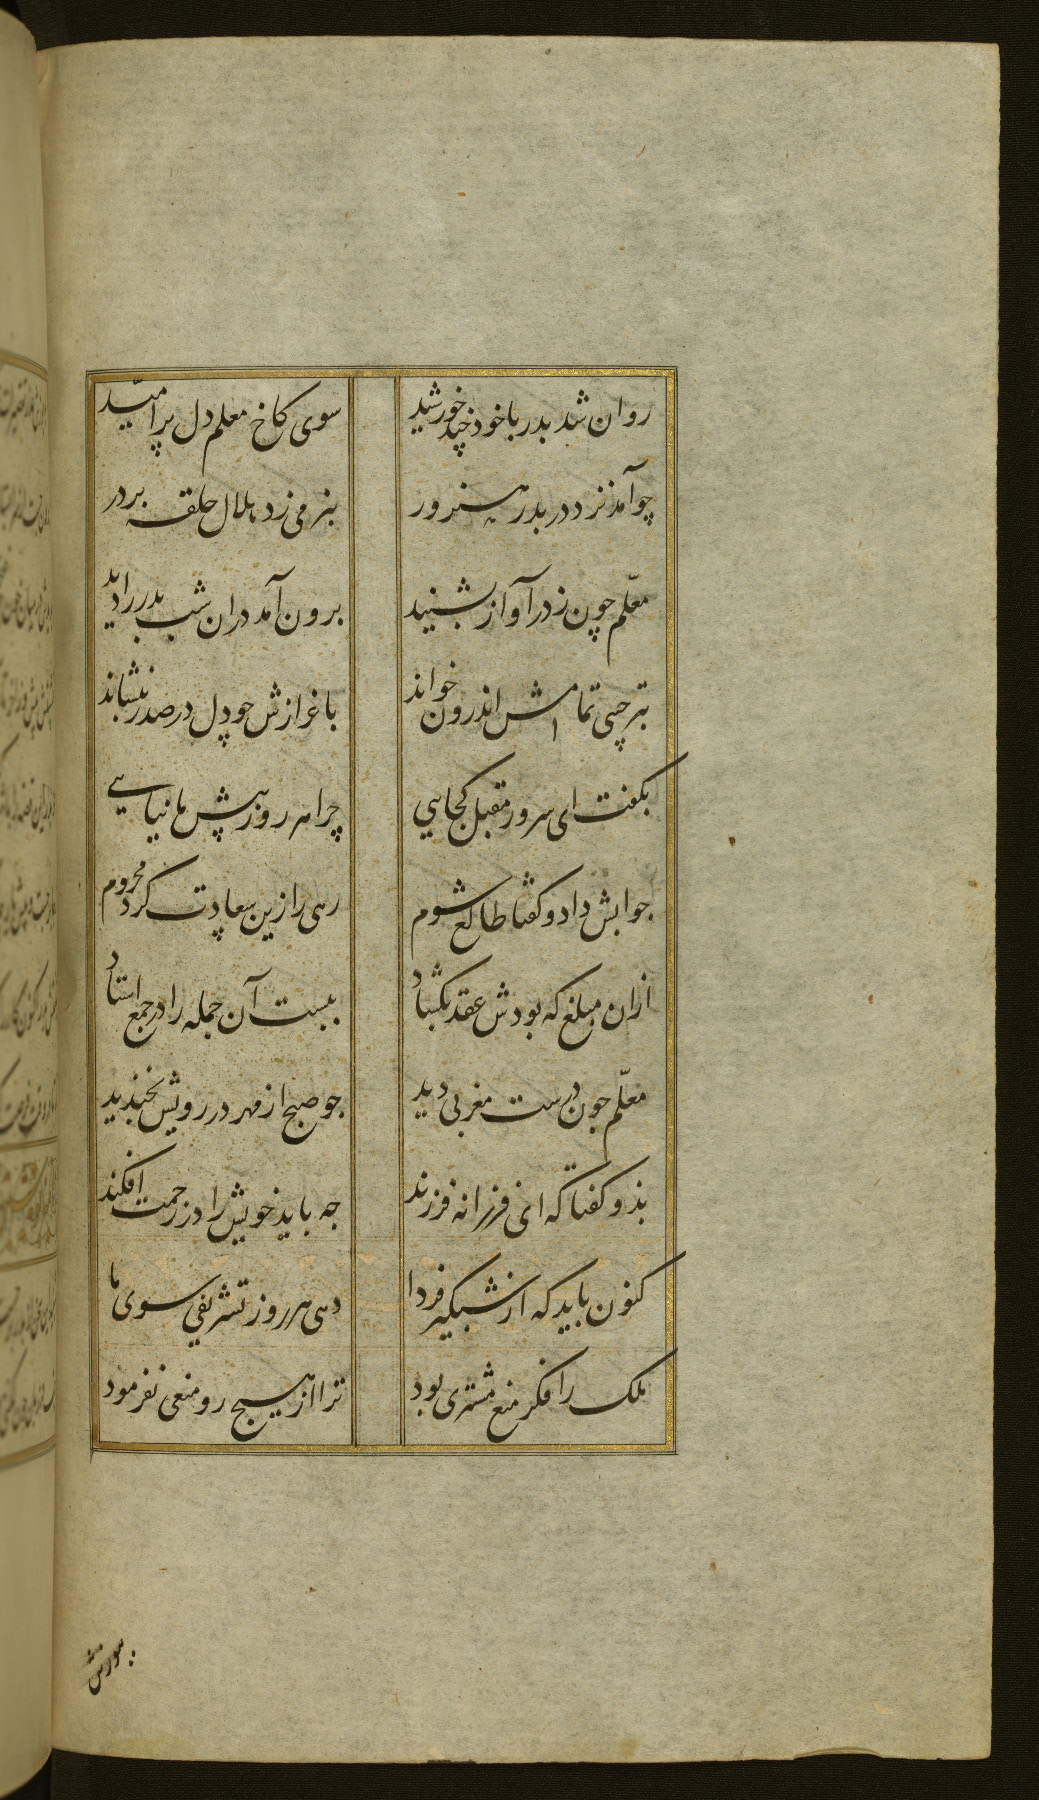 روان شد بدر با خود چند خورشید سوی کاخ معلم دل پر امّید
چو آمد نزد در بدر هنرور بزر می زد هلال حلقه بر در
معلّم چون ز در آواز بشنید برون آمد دران شب بدر را دید
بترحیبی تمامش اندرون خواند باغرازش چو دل در صدر بنشاند
بگفت ای سرور مقبل کجایی چرا هر روز پیش ما نیایی
جوابش داد و گفتا طالع شوم رهی را زین سعادت کرد محروم
ازان مبلغ که بودش عقد بگشاد ببست آن جمله را در جمع استاد
معلّم جون درست مغربی دید جو صبح از مهر در رویش بخندید
بذو گفتا که ای فرزانه فرزند جه باید خویش را در زحمت افکند
کنون باید که از شبگیر فردا دهی هر روز تشریفی سوی ما
ملک را فکر منع مشتری بود ترا از هیچ رو منعی نفرمود